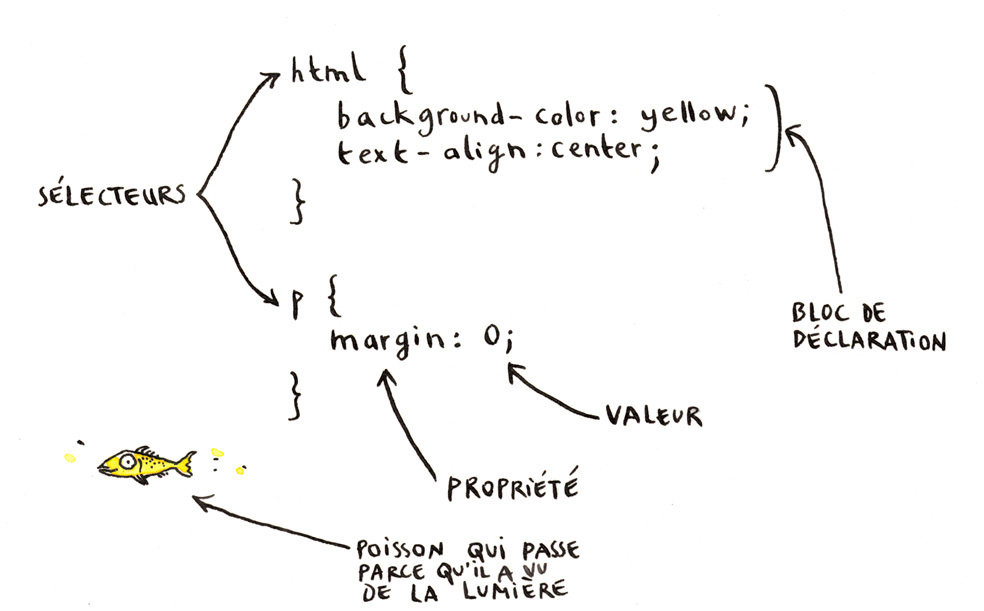 html {
background-color: yellow;
text-align: center;
}
SÉLECTEURS
p {
margin: 0;
}
BLOC DE
DÉCLARATION
VALEUR
PROPRIÉTÉ
POISSON QUI PASSE
PARCE QU'IL A VU
DE LA LUMIÈRE